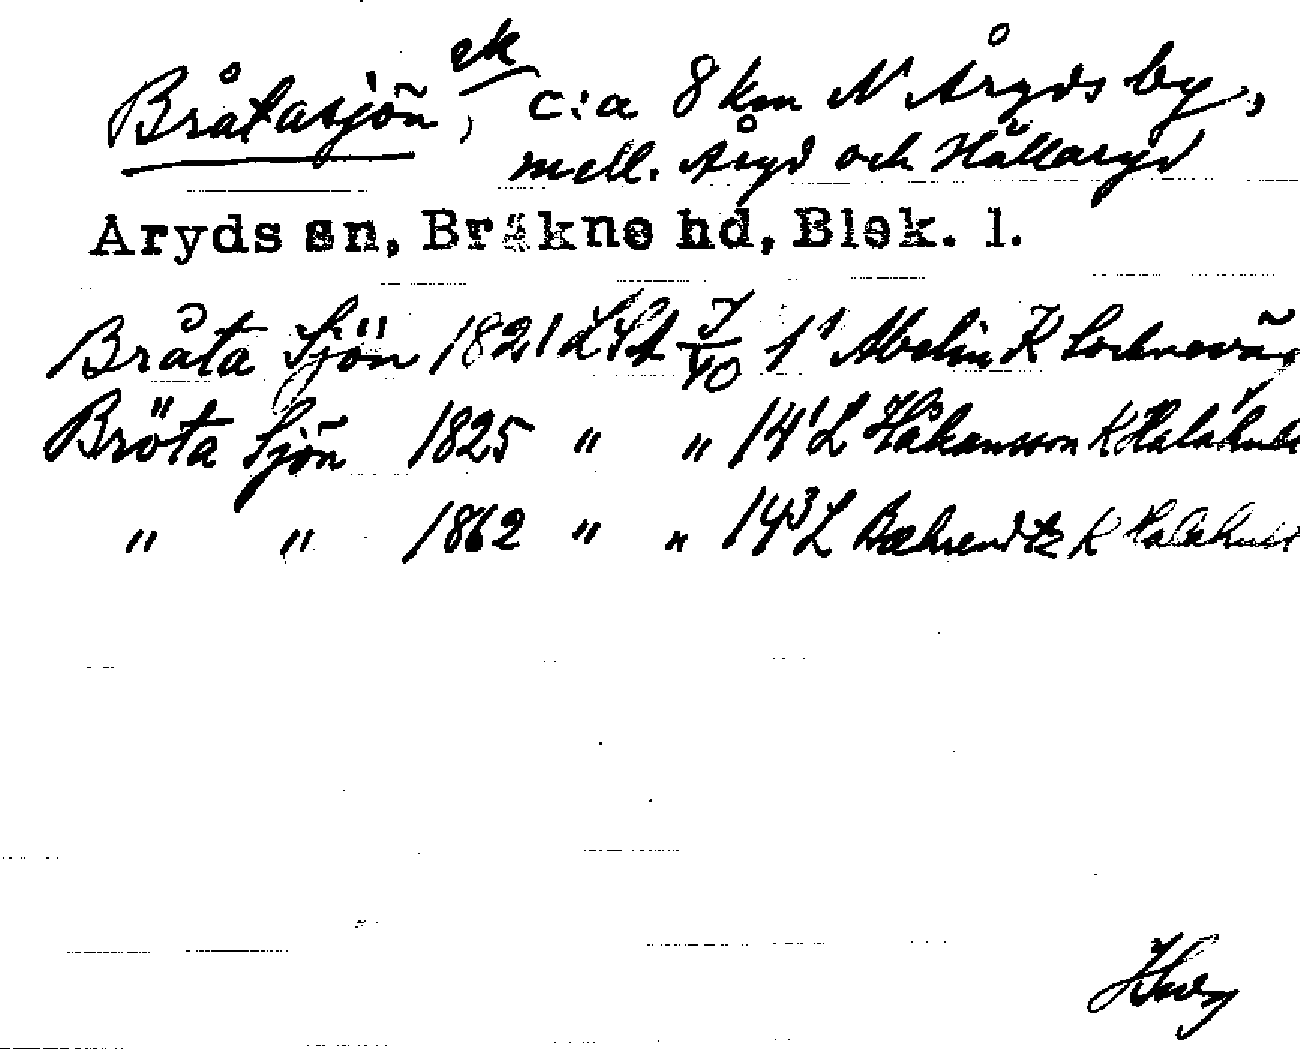 Bråtasjön, ek c:a 8 km N Åryds by,
mell. Åryd och Hällaryd
Åryds sn, Bräkne hd, Blek. l.
Bråta Sjön 1821 LSA 7/40 1' Abelin K
Bröta Sjön 1825 " " 14' L Håkansson K Halahult
" " 1862 " " 14³ L Bæhrendtz K Halahult